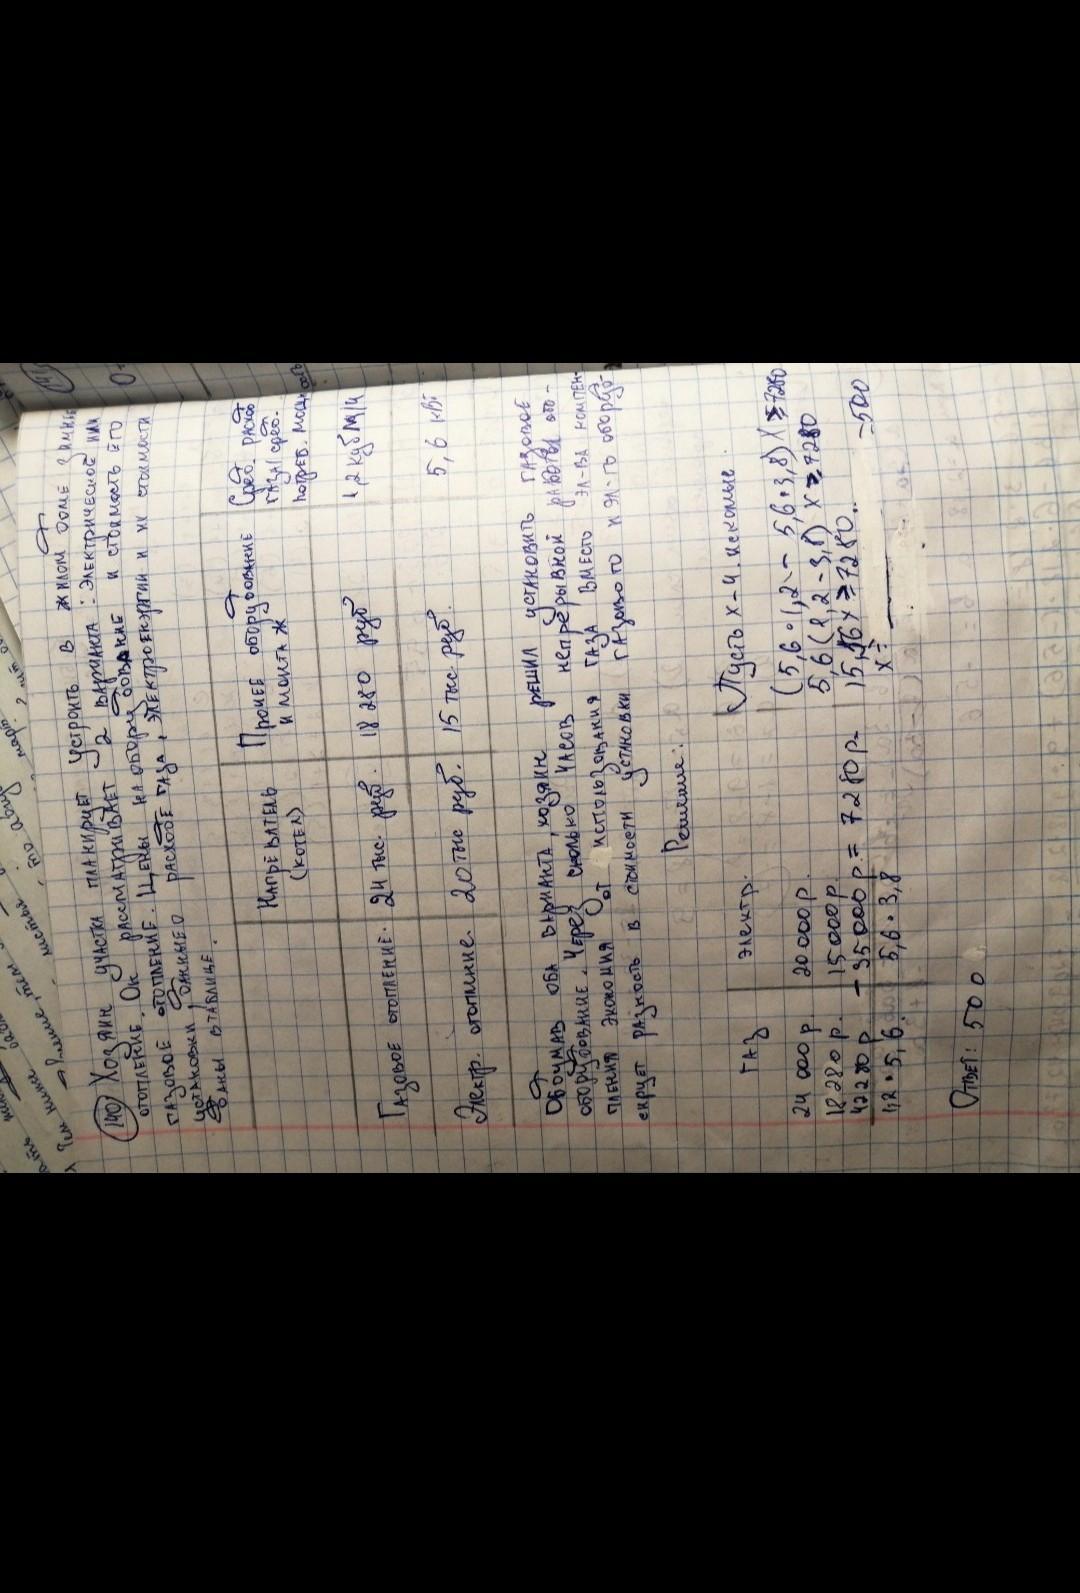 140 Хозяин участка планирует устроить в жилом доме зимнее
отопление. Он рассматривает 2 варианта: электрическое или
газовое отопление. Цены на оборудование и стоимость его
установки, данные о расходе газа, электроенргии и их стоимости
даны в таблице.
Нагреватель (котел)
Прочее оборудование и монтаж
Сред. расход газа/сред. потреб. мощность
Газовое отопление. 24 тыс. руб. 18 280 руб 1,2 куб м/ч
Электр. отопление. 20 тыс руб. 15 тыс. руб. 5,6 кВт
Обдумав оба варианта, хозяин решил установить газовое
оборудование. Через сколько часов непрерывной работы ото-
пления экономия от использования газа вместо эл-ва компен-
сирует разность в стоимости установки газового и эл-го оборуд-
Решение:
газ электр.
24 000 р 20 000 р.
18 280 р. 15 000 р.
42280 р - 35 000 р = 7280 р.
1,2 · 5,6. 5,6 · 3,8
Пусть х - ч. искомые.
(5,6 · 1,2 - 5,6 · 3,8) х ≥ 7280
5,6 (1,2 - 3,8) х ≥ 7280
≥ 7280..
х = -500
Ответ: 500